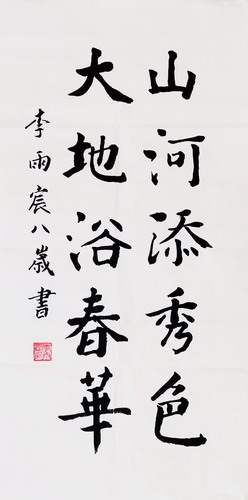 山河添秀色
大地浴春華
李雨宸八歲書